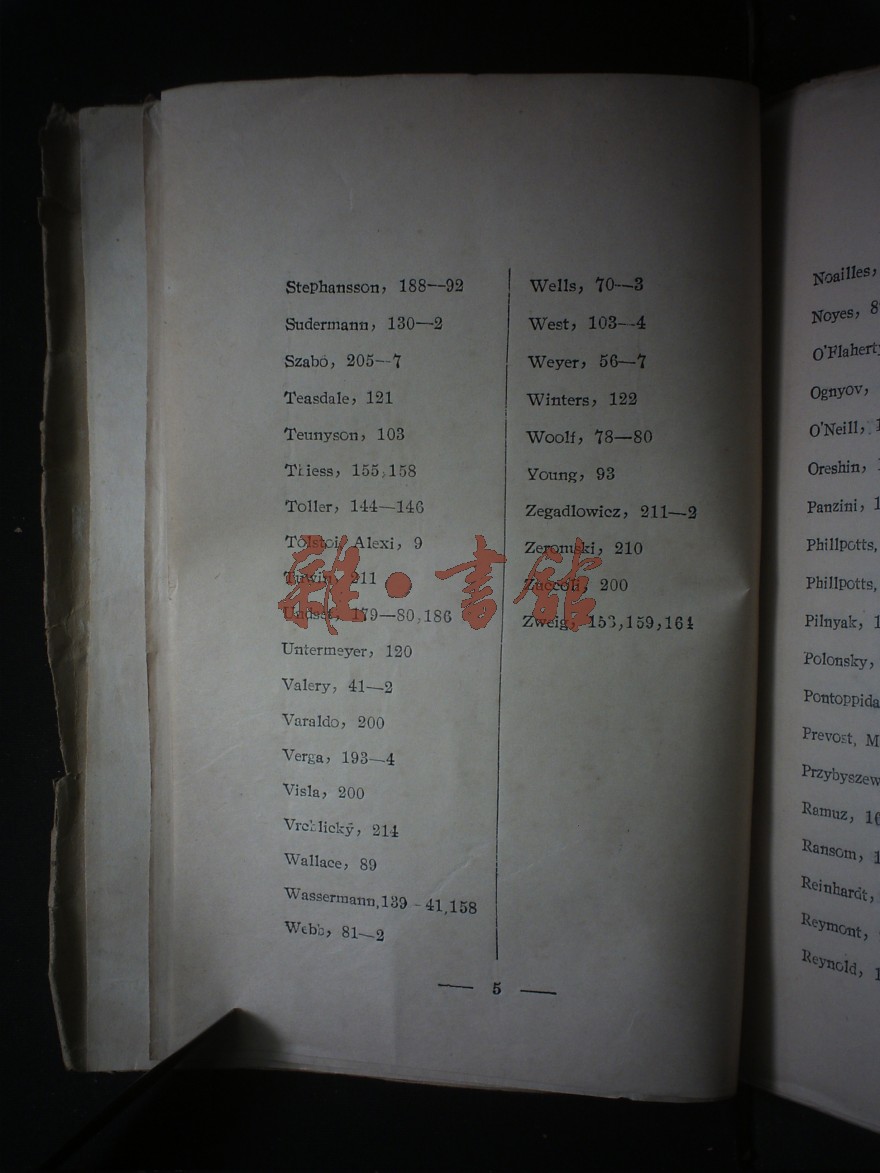 Stephansson, 188—92
Sudermann, 130—2
Szabo, 205—7
Teasdale, 121
Teunyson, 103
Thiess, 155,158
Toller, 144—146
Tolstoi, Alexi, 9
Tuwin, 211
Undset, 179—80,186
Untermeyer, 120
Valery, 41—2
Varaldo, 200
Verga, 193—4
Visla, 200
Vrchlický, 214
Wallace, 89
Wassermann,139-41,158
Webb, 81—2
Wells, 70—3
West, 103—4
Weyer, 56—7
Winters, 122
Woolf, 78—80
Young, 93
Zegadlowicz, 211—2
Zeromski, 210
Zuccoli, 200
Zweig, 153,159,164
— 5 —
雜·書館
Noailles,
Noyes, 8
O'Flaherty
Ognyov,
O'Neill,
Oreshin,
Panzini, 1
Phillpotts,
Phillpotts,
Pilnyak, 1
Polonsky,
Pontoppida
Prevost, M
Przybyszew
Ramuz, 16
Ransom, 1
Reinhardt,
Reymont,
Reynold, 1